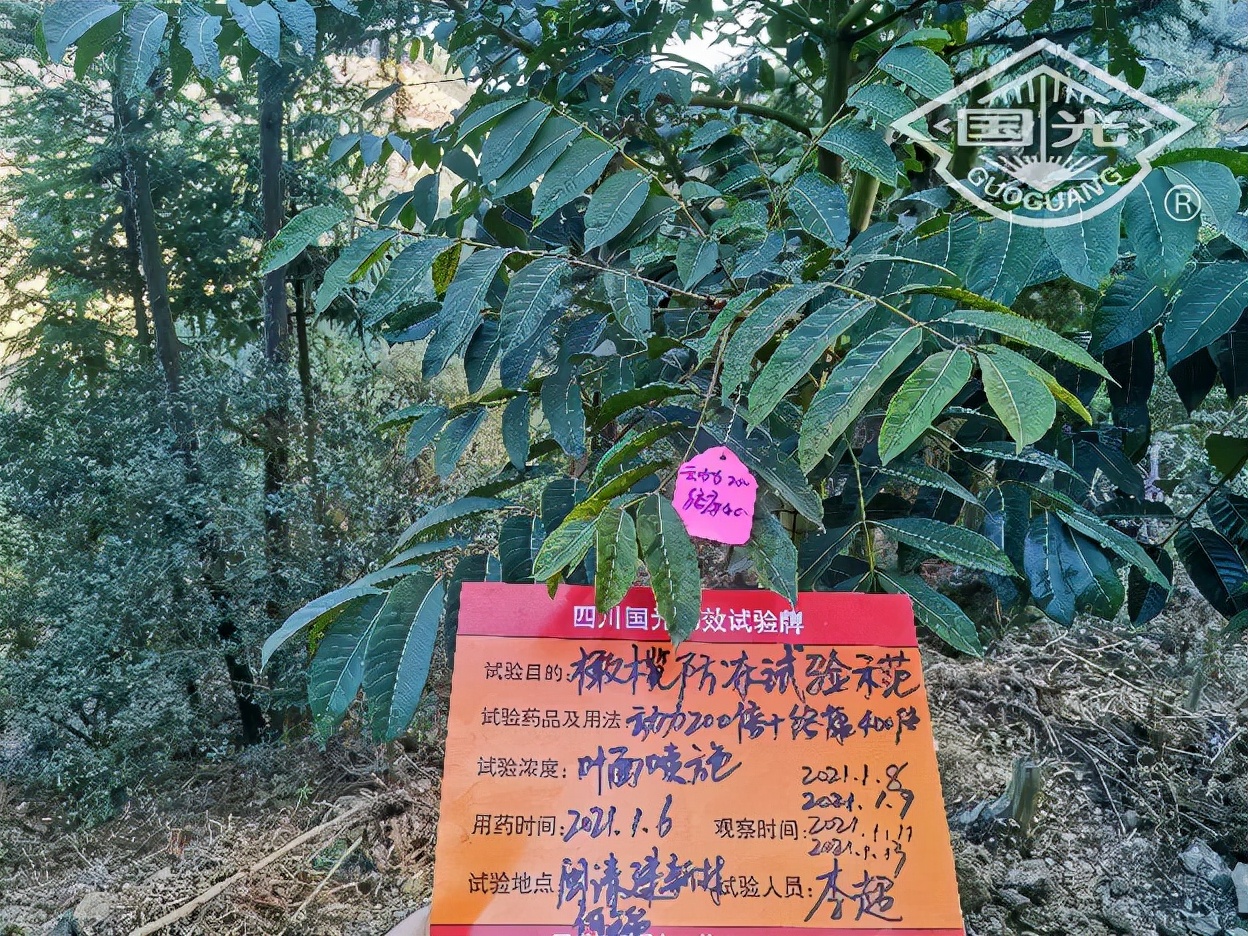 国光
GUOGUANG
®
动力200
四川国光 效试验牌
试验目的:橄榄防冻试验示范
试验药品及用法 动力200倍+络康400倍
试验浓度:叶面喷施
2021.1.8
2021.1.9
用药时间:2021.1.6 观察时间:2021.1.11
试验地点 闽清建新村 试验人员:李超